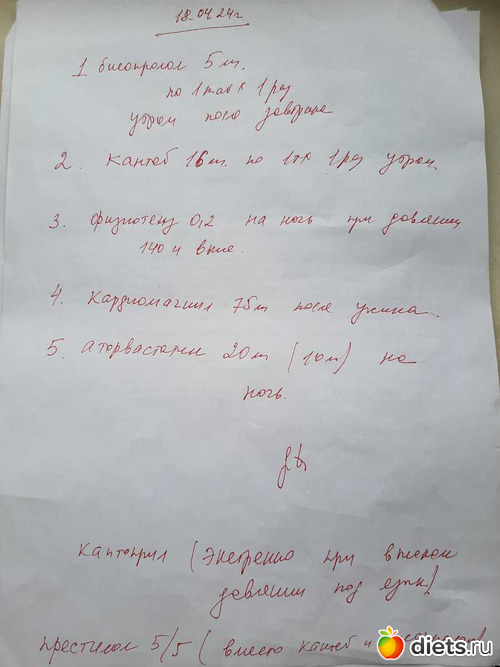 18.04.24г
1 бисопролол 5 мг.
по 1 таб х 1 раз
утром после завтрака
2. Кантаб 16 мг. по 1т х 1 раз утром
3. физиотенз 0,2 на ночь при давлении
140 и выше.
4. Кардиомагнил 75 мг после ужина.
5. аторвастатин 20 мг (10 мг) на
ночь.
каптоприл (экстренно при высоком
давлении под язык)
престилол 5/5 (вместо кантаб и
diets.ru